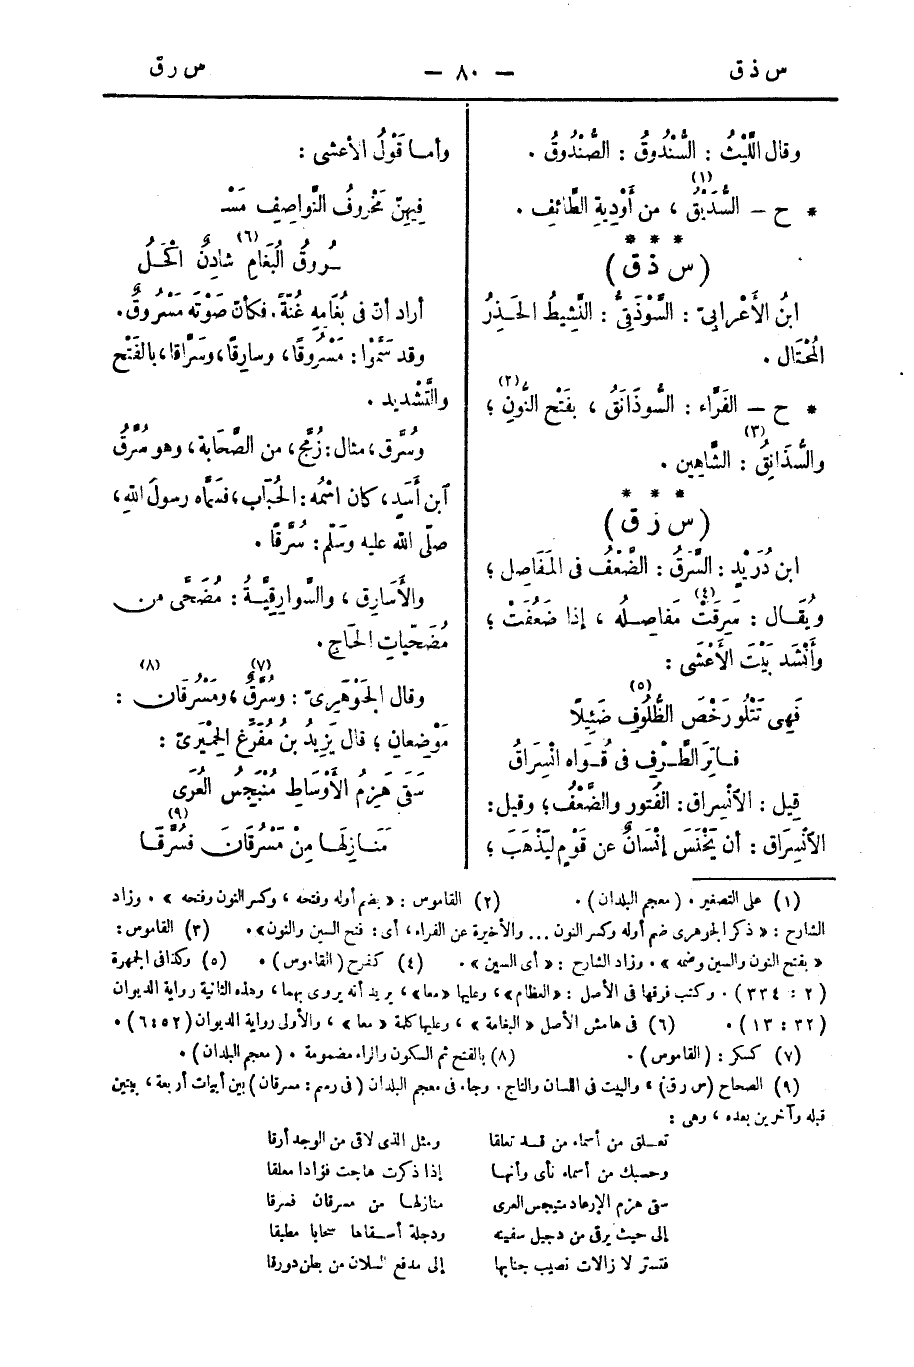 س ذ ق
— ٨٠ —
س ر ق
وقال اللَّيْثُ : السُّنْدُوقُ : الصُّنْدُوقُ .
* ح — السُّدَيْقُ (١) ، من أَوْدِيةِ الطَّائفِ .
* * *
( س ذ ق )
ابنُ الأَعْرابىّ : السَّوْذَقِىُّ : النَّشِيطُ الحَذِرُ
المُحْتَال .
* ح — الفَرَّاء : السُّوذَانَقُ (٢) ، بفَتْح النُّونِ ؛
والسُّذَانِقُ (٣) : الشَّاهِين .
* * *
( س ر ق )
ابن دُرَيْدٍ : السَّرَقُ : الضَّعْفُ فى المَفَاصِل ؛
ويُقَال : سَرِقَتْ (٤) مَفاصِلُه ، إذا ضَعُفَتْ ؛
وأَنْشَد بَيْتَ الأَعْشَى :
فَهِى تَتْلُو رَخْصَ الظُّلُوفِ (٥) ضَئِيلًا
فاتِرَ الطَّرْفِ فى قُوَاه انْسِراقُ
قِيل : الانْسِراق : الفُتور والضَّعْفُ ؛ وقيل :
الانْسِرَاق : أن يَخْنَسَ إنْسَانٌ عن قَوْمٍ لِيَذْهَبَ ؛
وأما قَوْلُ الأعشى :
فِيهِنّ مَخْروفُ النَّواصِفِ مَسْـ
ـرُوقُ البُغَامِ (٦) شادِنٌ أكْحَلُ
أراد أن فى بُغَامِه غُنَّةً، فكأن صَوْتَه مَسْرُوقٌ .
وقد سَمَّوْا : مَسْرُوقًا ، وسارِقًا ، وسَرَّاقا ، بالفَتْح
والتَّشْديد .
وسُرَّق ، مثال : زُمَّج ، من الصَّحَابة ، وهو سُرَّقُ
ابن أَسَدٍ ، كان اسْمُه : الحُبَاب ، فسَمَّاه رسولُ الله ،
صلّى الله عليه وسَلّم : سُرَّقًا .
والأَسَارِق ، والسَّوارِقِيَّةُ : مُضَحًّى من
مُضَحَّياتِ الحَاجِ .
وقال الجَوْهَرِىّ : وسُرَّقٌ (٧) ، ومَسْرُقَان (٨) :
مَوْضِعانِ ؛ قال يَزِيدُ بنُ مُفَرِّغٍ الحِمْيَرِىّ :
سَقَى هَزِمُ الأَوْسَاطِ مُنْبَجِسُ العُرَى
مَنَازِلَهَا مِنْ مَسْرُقَانَ فَسُرَّقَا (٩)
(١) على التصغير . ( معجم البلدان ) .
(٢) القاموس : « بضم أوله وفتحه ، وكسر النون وفتحه » . وزاد
الشارح : « ذكر الجوهرى ضم أوله وكسر النون ... والأخيرة عن الفراء ، أى : فتح السين والنون» .
(٣) القاموس :
« بفتح النون والسين وضمه » . وزاد الشارح : « أى السين » .
(٤) كفرح ( القاموس ) .
(٥) وكذا فى الجمهرة
(٢ : ٣٣٤ ) . وكتب فوقها فى الأصل : «العظام» ، وعليها «معا» ، يريد أنه يروى بهما ، وهذه الثانية رواية الديوان
(٣٢ : ١٣) .
(٦) فى هامش الأصل « البغامة » ، وعليها كلمة « معا » ، والأولى رواية الديوان (٥٢ : ٦) .
(٧) كسكر : ( القاموس ) .
(٨) بالفتح ثم السكون والراء مضمومة . ( معجم البلدان ) .
(٩) الصحاح (س ر ق) ، والبيت فى اللسان والتاج . وجاء فى معجم البلدان ( فى رسم : مسرقان ) بين أبيات أربعة ، بيتين
قبله وآخرين بعده ، وهى :
تعلق من أسماء من قد تعلقا ومثل الذى لاقى من الوجد أرقا
وحسبك من أسماء نأى وأنها إذا ذكرت هاجت فؤادا معلقا
سقى هزم الإرعاد منبجس العرى منازلها من مسرقان فسرقا
إلى حيث يرقى من دجيل سفينه ودجلة أسقاها سحابا مطبقا
فتستر لا زالت نصيب جنابها إلى مدفع السلان من بطن دورقا